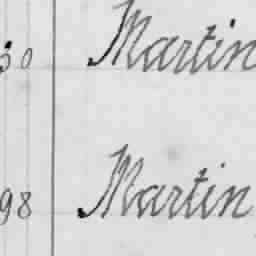 30 Martin
98 Martin